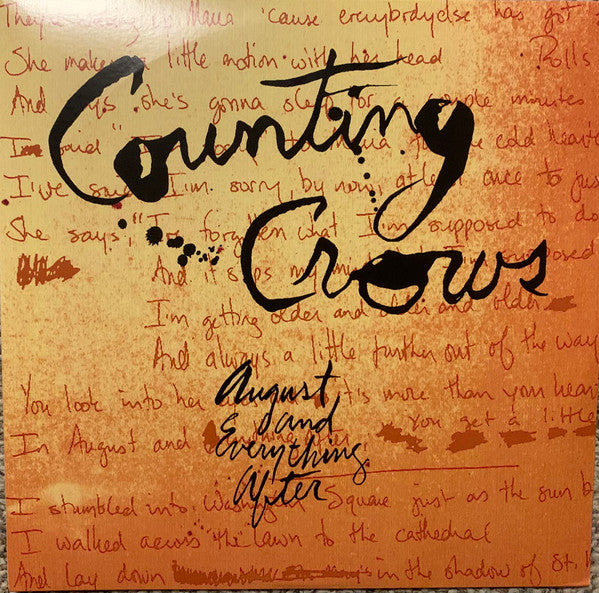 'cause everybody else has got
She makes a little motion with her head Rolls
And says she's gonna sleep for a couple minutes
Counting
I said to Maria for the cold
I've said, I'm sorry, by now, at least once to jus
She says, "I've forgotten what I'm supposed to do
Crows
And it slips my I'm supposed
I'm getting older and older and older
And always a little further out of the way
August
You look into her it's more than your hear
and
In August and You get a little
Everything
After
I stumbled into Washington Square just as the sun b
I walked across the lawn to the cathedral
And lay down in the shadow of St.